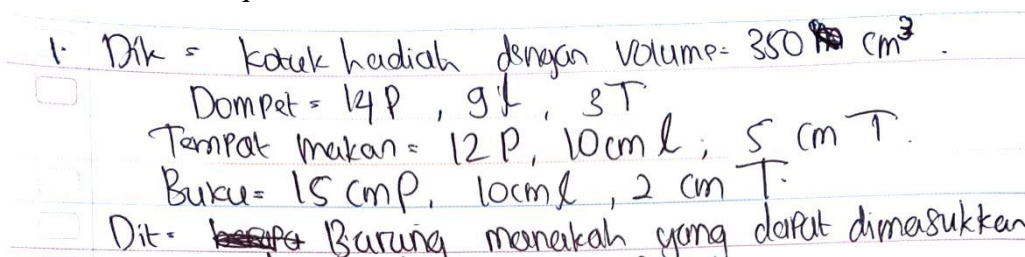 1. Dik = kotak hadiah dengan Volume = 350 cm³.
Dompet = 14 P, 9 l, 3 T
Tempat makan = 12 P, 10 cm l, 5 cm T.
Buku = 15 cm P, 10 cm l, 2 cm T.
Dit = Barang manakah yang dapat dimasukkan